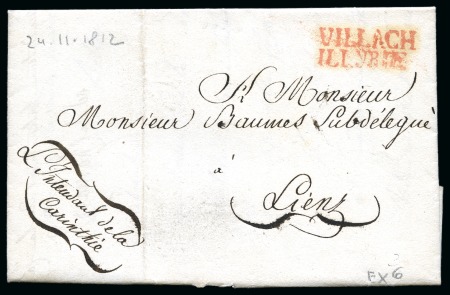 24.11.1812
VILLACH
ILLYRIE
A Monsieur
Monsieur Baumes Subdélegué
à
Lienz
L'Intendant de la
Carinthie
EX6